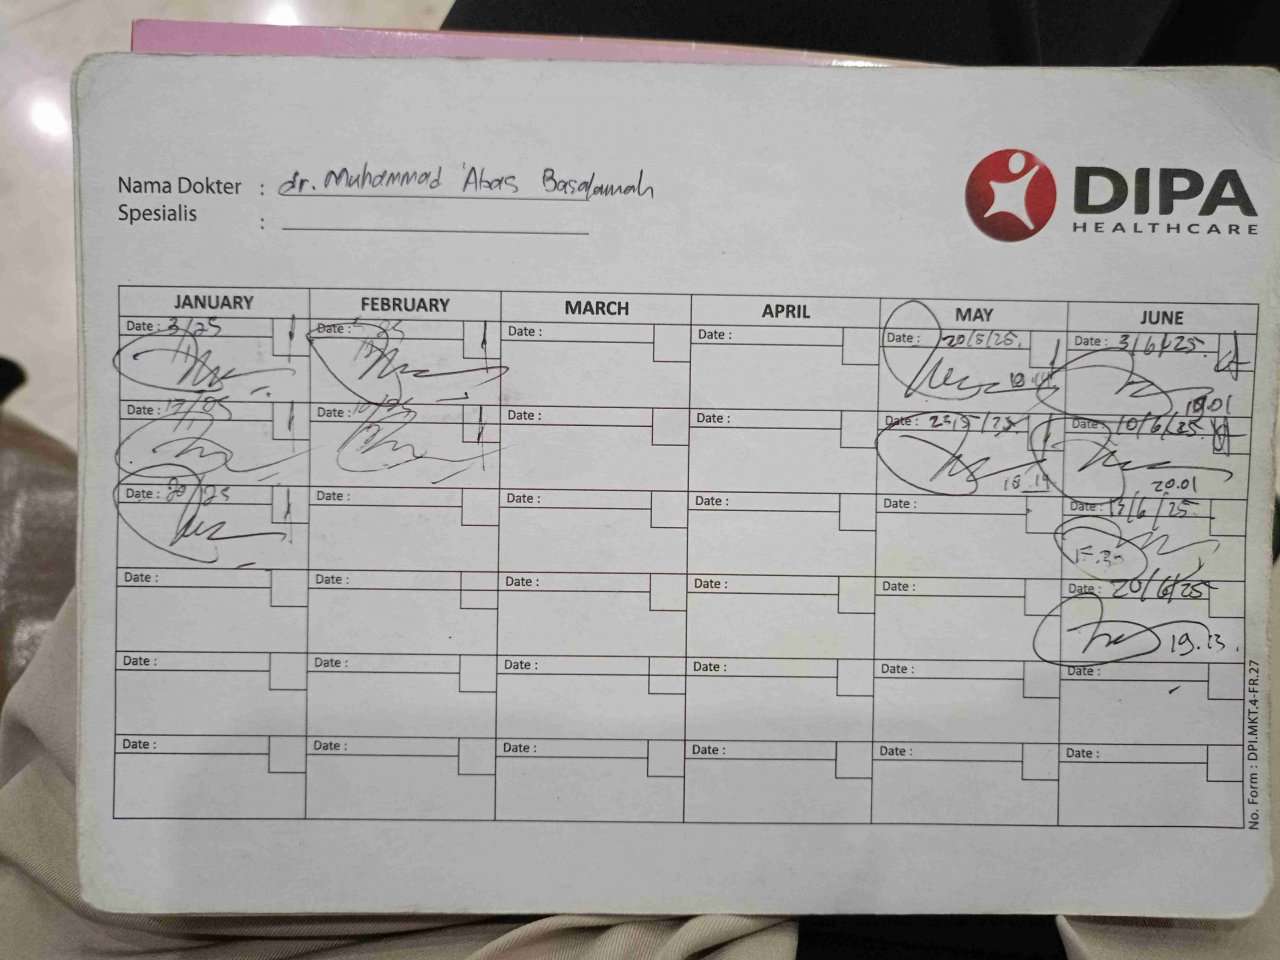 Nama Dokter : dr. Muhammad 'Abas Basalamah
Spesialis :
DIPA
HEALTHCARE
JANUARY FEBRUARY MARCH APRIL MAY JUNE
Date : 3/25 Date : Date : Date : Date : 20/5/25. Date : 3/6/25.
19.01
Date : Date : Date : Date : Date : Date : 10/6/25.
18.19 20.01
Date : 20/25 Date : Date : Date : Date : Date :
Date : Date : Date : Date : Date : Date : 20/6/25
19.13.
Date : Date : Date : Date : Date : Date :
Date : Date : Date : Date : Date : Date :
No. Form : DPI.MKT.4-FR.27